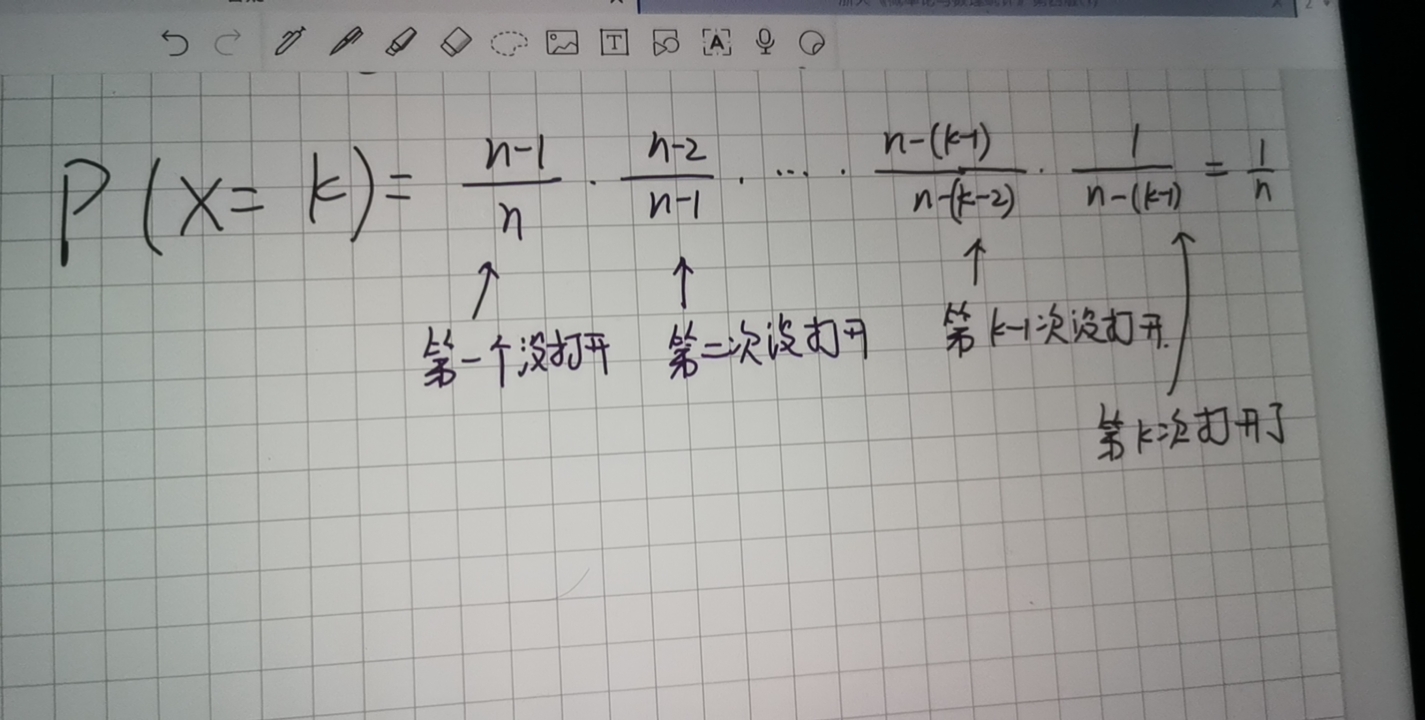 P(x=k)= n-1/n · n-2/n-1 · ... · n-(k-1)/n-(k-2) · 1/n-(k-1) = 1/n
第一个没打开 第二次没打开 第k-1次没打开.
第k次打开了